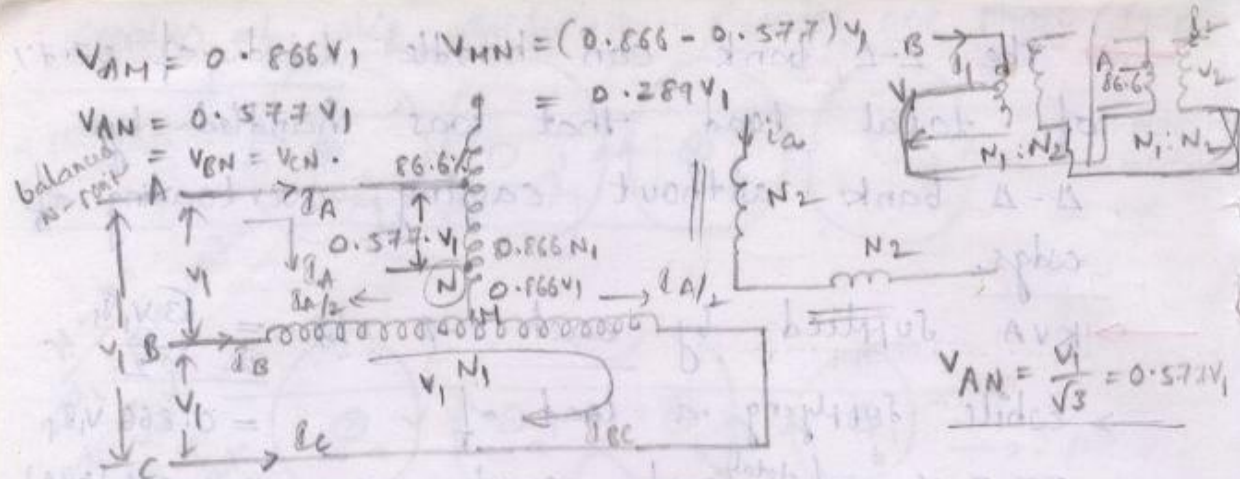 V_AM = 0.866V₁ V_MN = (0.866 - 0.577) V₁
= 0.289V₁
V_AN = 0.577 V₁
= V_BN = V_CN.
balanced
A I_A 86.6%
0.577 V₁ 0.866N₁
I_A
I_A/2 N 0.866V₁ I_A/2
M
V₁
B I_B
V₁ N₁
V₁
V₁ I_BC
C I_C
i_a
N₂
N₂
B I₁ V₁ N₁ : N₂
A 86.6% V₂ N₁ : N₂
V_AN = V₁/√3 = 0.577V₁